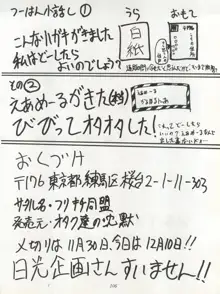 つーはん小話し①
うら
おもて
こんなハガキがきました
私はどーしたら
よいのでしょう?
白紙
その②
えあめーるがきた(本当)
びびってオタオタした!
おくづけ
〒176 東京都練馬区桜台2-1-11-303
サークル名・フリチン同盟
発売元・オタク達の沈黙
メ切りは11月30日、今日は12月10日!!
日光企画さんすいません!!